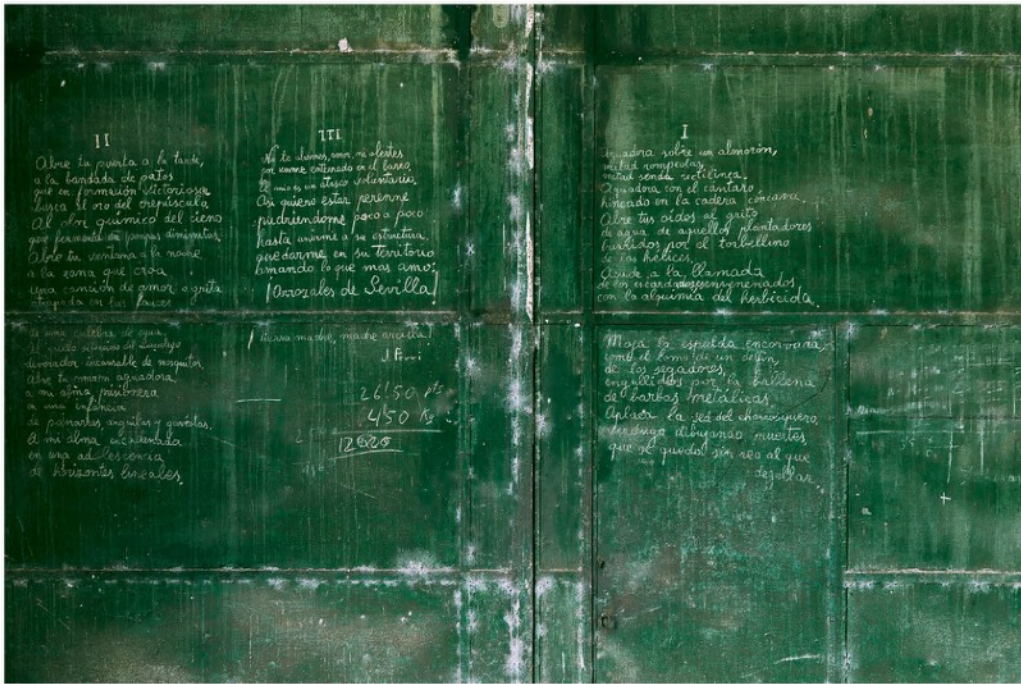 II
Abre tu puerta a la tarde,
a la bandada de patos
que en formación victoriosa
busca el oro del crepúsculo.
Al olor químico del cieno
que fermenta en pompas diminutas.
Abre tu ventana a la noche
a la rana que croa
una canción de amor o grita
atrapada en las fauces
de una culebra de agua.
Al vuelo
devorador incansable de mosquitos.
Abre tu aguadora,
a mi alma prisionera
en una infancia
de anguilas y gaviotas.
A mi alma encadenada
en una adolescencia
de horizontes lineales.
III
No te alarmes, ni alertes
por verme enterrado en el barro.
El mío es un atasco voluntario.
Así quiero estar perenne
pudriéndome poco a poco
hasta unirme a su estructura.
quedarme en su territorio
amando lo que mas amo:
¡Arrozales de Sevilla!
¡ tierra madre, madre arcilla!
J.
26'50 pts
450
12020
X
I
Aguadora sobre un almorrón,
mitad rompeolas,
mitad senda rectilínea.
Aguadora con el cántaro
hincado en la cadera cóncava.
Abre tus oidos al grito
de agua de aquellos plantadores
por el torbellino
de las hélices.
Acude a la llamada
de los
con la alquimia del herbicida.
Moja la espalda encorvada,
como el lomo de un delfín,
de los segadores,
engullidos por la ballena
de barbas metálicas.
Aplaca la sed del
verdugo dibujando muertes
que se quedó sin reo al que
desollar.